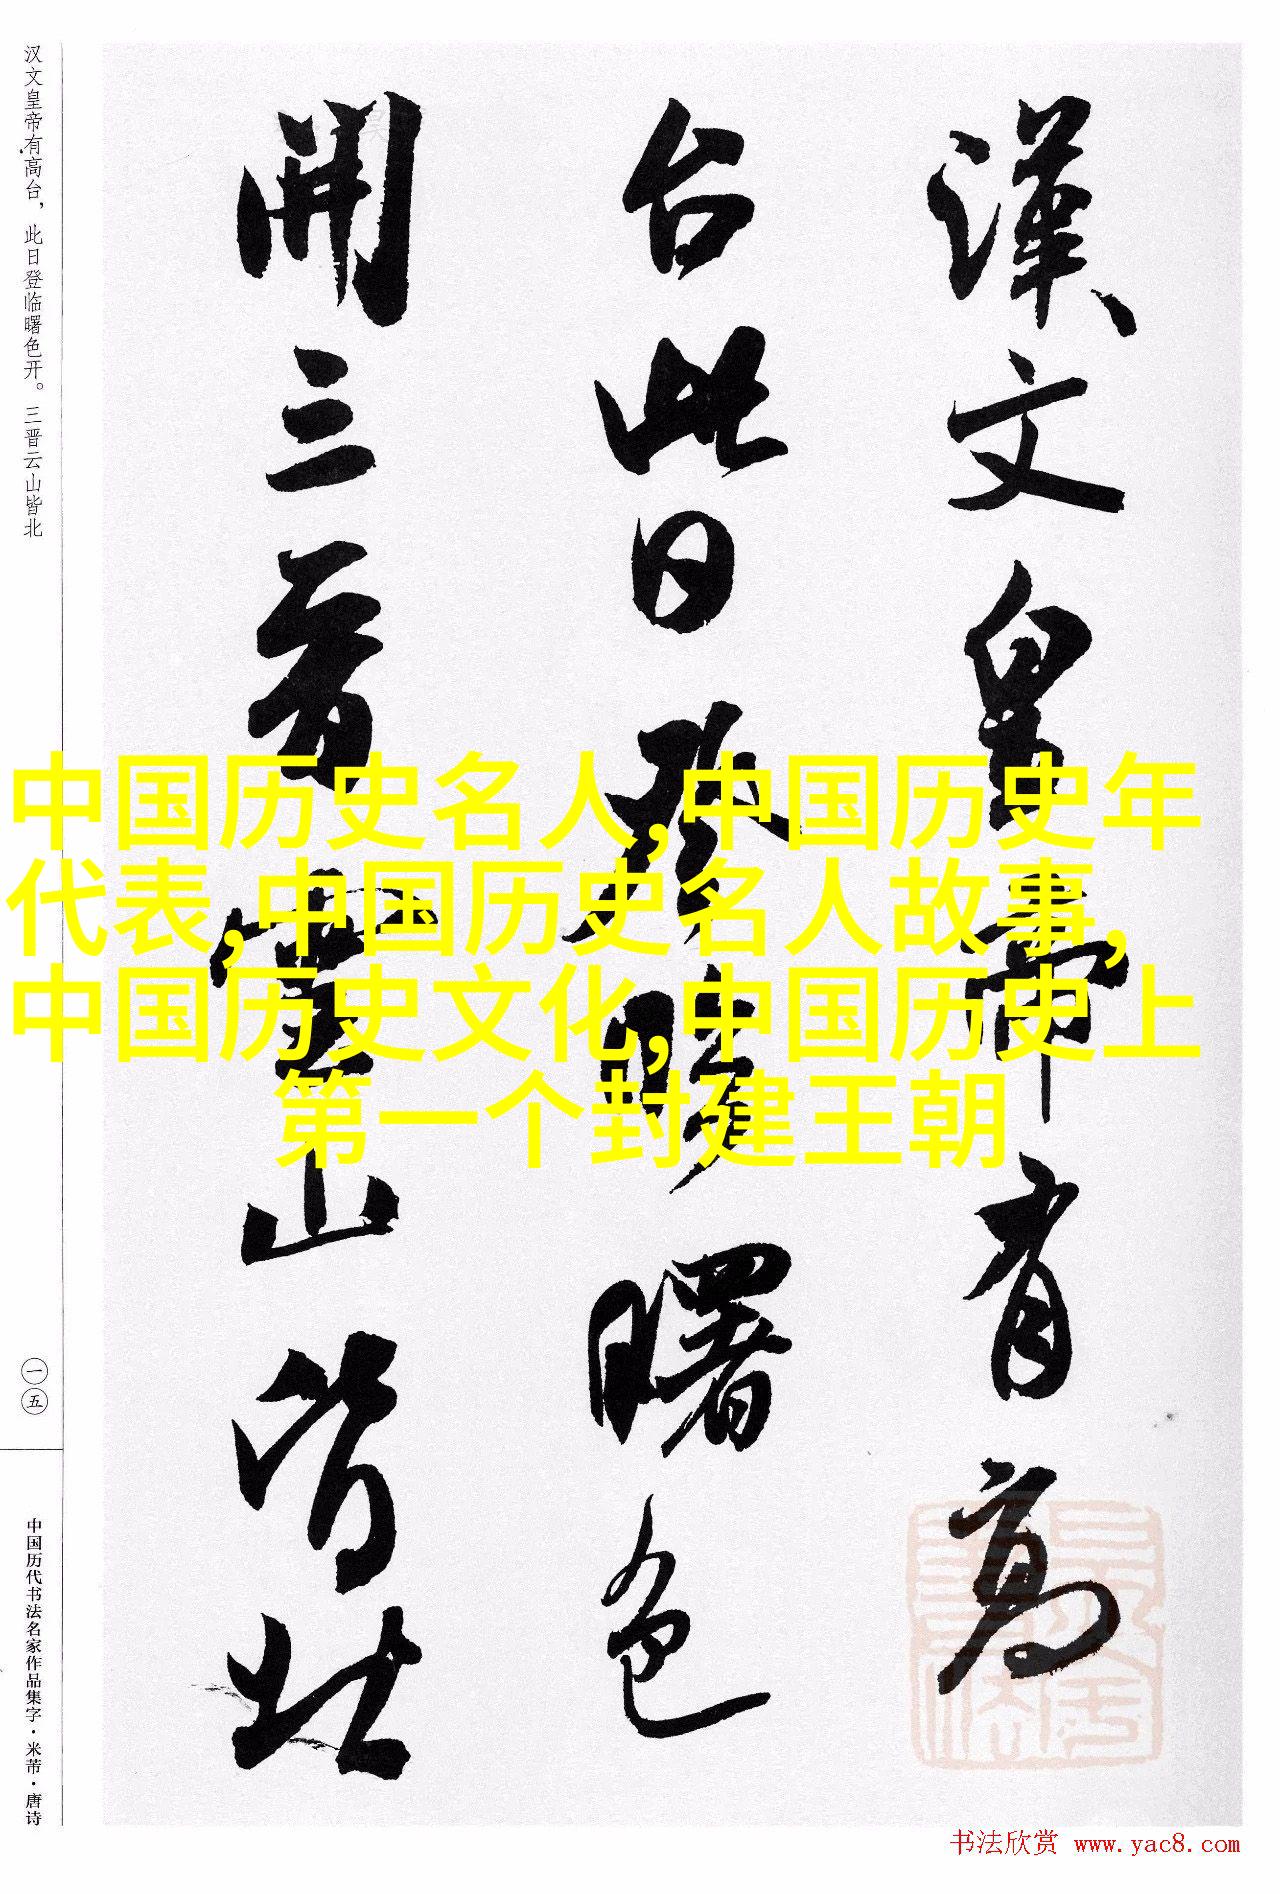 漢文皇帝有高
台此日登臨曙色
開三晋雲山皆北
汉文皇帝有高台，此日登临曙色开。三晋云山皆北
中国历史名人,中国历史年
代表,中国历史名人故事,
中国历史文化,中国历史上
第一个封建王朝
一五
中国历代书法名家作品集字·米芾·唐诗
书法欣赏 www.yac8.com